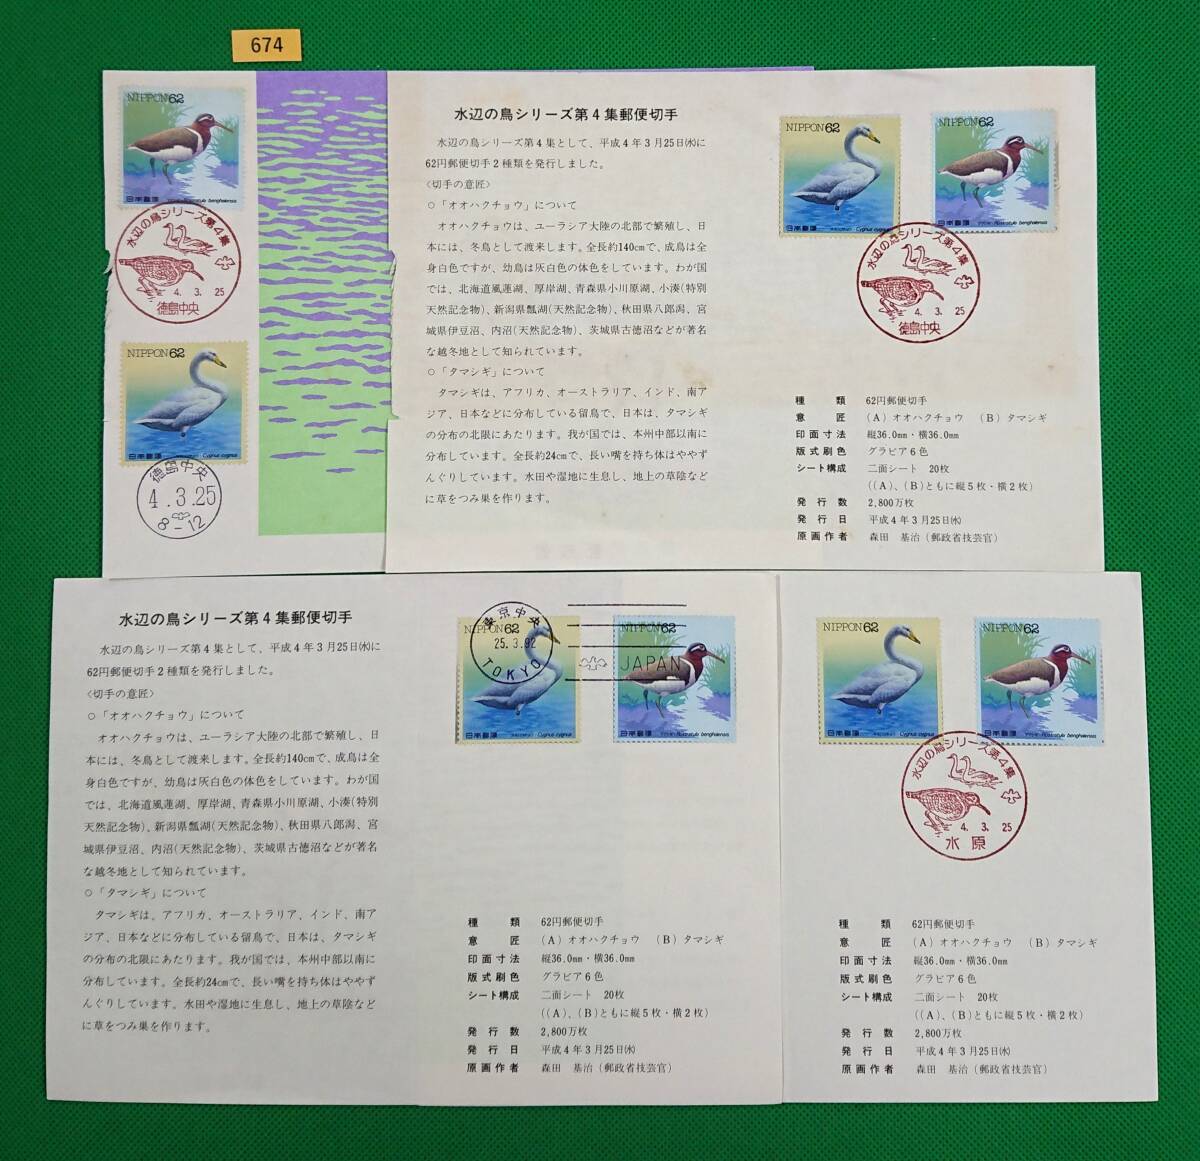 674
NIPPON 62
日本郵便
タマシギ・Rostratula benghalensis
水辺の鳥シリーズ第4集
4. 3. 25
徳島中央
NIPPON 62
日本郵便
Cygnus cygnus
徳島中央
4.3.25
8-12
水辺の鳥シリーズ第4集郵便切手
水辺の鳥シリーズ第4集として、平成4年3月25日(水)に
62円郵便切手2種類を発行しました。
〈切手の意匠〉
○「オオハクチョウ」について
オオハクチョウは、ユーラシア大陸の北部で繁殖し、日
本には、冬鳥として渡来します。全長約140cmで、成鳥は全
身白色ですが、幼鳥は灰白色の体色をしています。わが国
では、北海道風蓮湖、厚岸湖、青森県小川原湖、小湊(特別
天然記念物)、新潟県瓢湖(天然記念物)、秋田県八郎潟、宮
城県伊豆沼、内沼(天然記念物)、茨城県古徳沼などが著名
な越冬地として知られています。
○「タマシギ」について
タマシギは、アフリカ、オーストラリア、インド、南ア
ジア、日本などに分布している留鳥で、日本は、タマシギ
の分布の北限にあたります。我が国では、本州中部以南に
分布しています。全長約24cmで、長い嘴を持ち体はややず
んぐりしています。水田や湿地に生息し、地上の草陰など
に草をつみ巣を作ります。
NIPPON 62
日本郵便
Cygnus cygnus
NIPPON 62
日本郵便
タマシギ・Rostratula benghalensis
水辺の鳥シリーズ第4集
4. 3. 25
徳島中央
種類 62円郵便切手
意匠 (A)オオハクチョウ (B)タマシギ
印面寸法 縦36.0mm・横36.0mm
版式刷色 グラビア6色
シート構成 二面シート 20枚
((A)、(B)ともに縦5枚・横2枚)
発行数 2,800万枚
発行日 平成4年3月25日(水)
原画作者 森田 基治(郵政省技芸官)
水辺の鳥シリーズ第4集郵便切手
水辺の鳥シリーズ第4集として、平成4年3月25日(水)に
62円郵便切手2種類を発行しました。
〈切手の意匠〉
○「オオハクチョウ」について
オオハクチョウは、ユーラシア大陸の北部で繁殖し、日
本には、冬鳥として渡来します。全長約140cmで、成鳥は全
身白色ですが、幼鳥は灰白色の体色をしています。わが国
では、北海道風蓮湖、厚岸湖、青森県小川原湖、小湊(特別
天然記念物)、新潟県瓢湖(天然記念物)、秋田県八郎潟、宮
城県伊豆沼、内沼(天然記念物)、茨城県古徳沼などが著名
な越冬地として知られています。
○「タマシギ」について
タマシギは、アフリカ、オーストラリア、インド、南ア
ジア、日本などに分布している留鳥で、日本は、タマシギ
の分布の北限にあたります。我が国では、本州中部以南に
分布しています。全長約24cmで、長い嘴を持ち体はややず
んぐりしています。水田や湿地に生息し、地上の草陰など
に草をつみ巣を作ります。
NIPPON 62
日本郵便
Cygnus cygnus
東京中央
25.3.92
TOKYO
NIPPON 62
JAPAN
日本郵便
タマシギ・Rostratula benghalensis
種類 62円郵便切手
意匠 (A)オオハクチョウ (B)タマシギ
印面寸法 縦36.0mm・横36.0mm
版式刷色 グラビア6色
シート構成 二面シート 20枚
((A)、(B)ともに縦5枚・横2枚)
発行数 2,800万枚
発行日 平成4年3月25日(水)
原画作者 森田 基治(郵政省技芸官)
NIPPON 62
日本郵便
Cygnus cygnus
NIPPON 62
日本郵便
タマシギ・Rostratula benghalensis
水辺の鳥シリーズ第4集
4. 3. 25
水原
種類 62円郵便切手
意匠 (A)オオハクチョウ (B)タマシギ
印面寸法 縦36.0mm・横36.0mm
版式刷色 グラビア6色
シート構成 二面シート 20枚
((A)、(B)ともに縦5枚・横2枚)
発行数 2,800万枚
発行日 平成4年3月25日(水)
原画作者 森田 基治(郵政省技芸官)